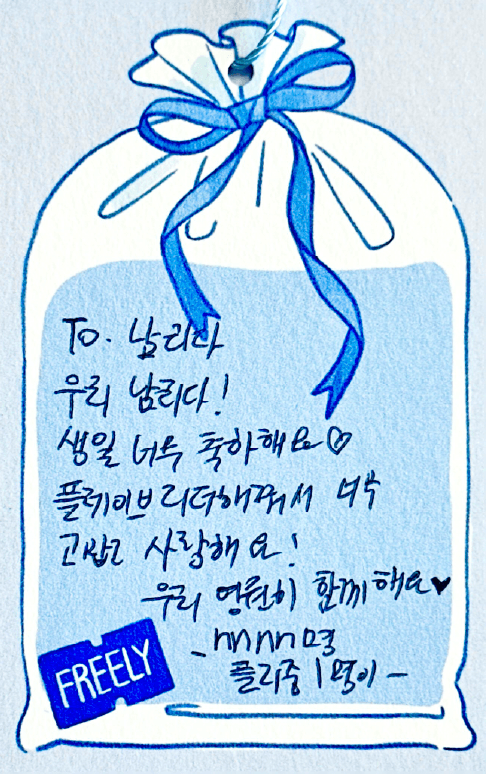 To. 남리다
우리 남리다!
생일 너무 축하해요♡
플레이브 리더해줘서 너무
고맙고 사랑해요!
우리 영원히 함께해요♥
-nnnn명
플리중 1명이-
FREELY